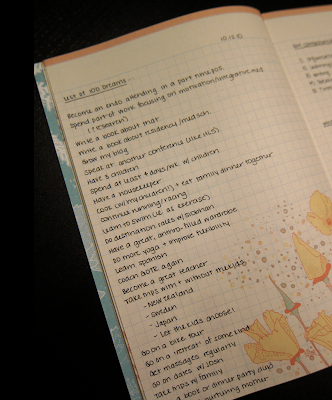 10.12.10
List of 100 Dreams
Become an endo attending in a part-time pos.
Spend part of work focusing on motivation/integrative med
(? research)
Write a book about that
Write a book about residency/med sch.
Grow my blog
Speak at another conference (like HLS)
Have 3 children
Spend at least 4 days/wk w/ children
Have a housekeeper
Cook (w/ my children!) + eat family dinner together
Continue running/racing
Learn to swim (i.e. as exercise)
Do destination races w/
Have a great, anthro-filled wardrobe
Do more yoga + improve flexibility
Learn Spanish
Coach GOTR again
Become a great teacher
Take trips with + without the kids
- New Zealand
- Sweden
- Japan
- Let the kids choose!
Go on a bike tour
Go on a 'retreat' of some kind
Get massages regularly
Go on dates w/ Josh
Take trips w/ family
a book or dinner party club
nurturing mother